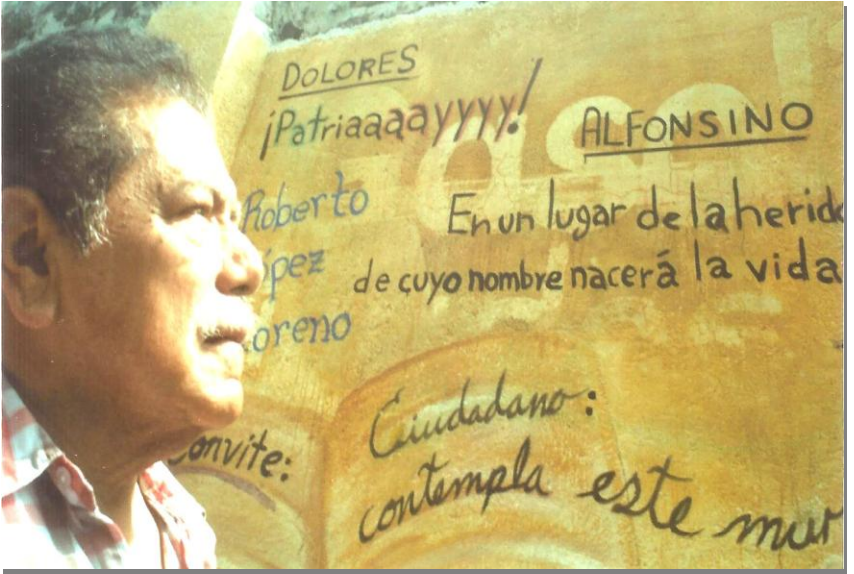 DOLORES
¡Patriaaaayyyy!
ALFONSINO
Roberto
En un lugar de la herid
de cuyo nombre nacerá la vida
ópez
oreno
onvite:
Ciudadano:
contempla este mur